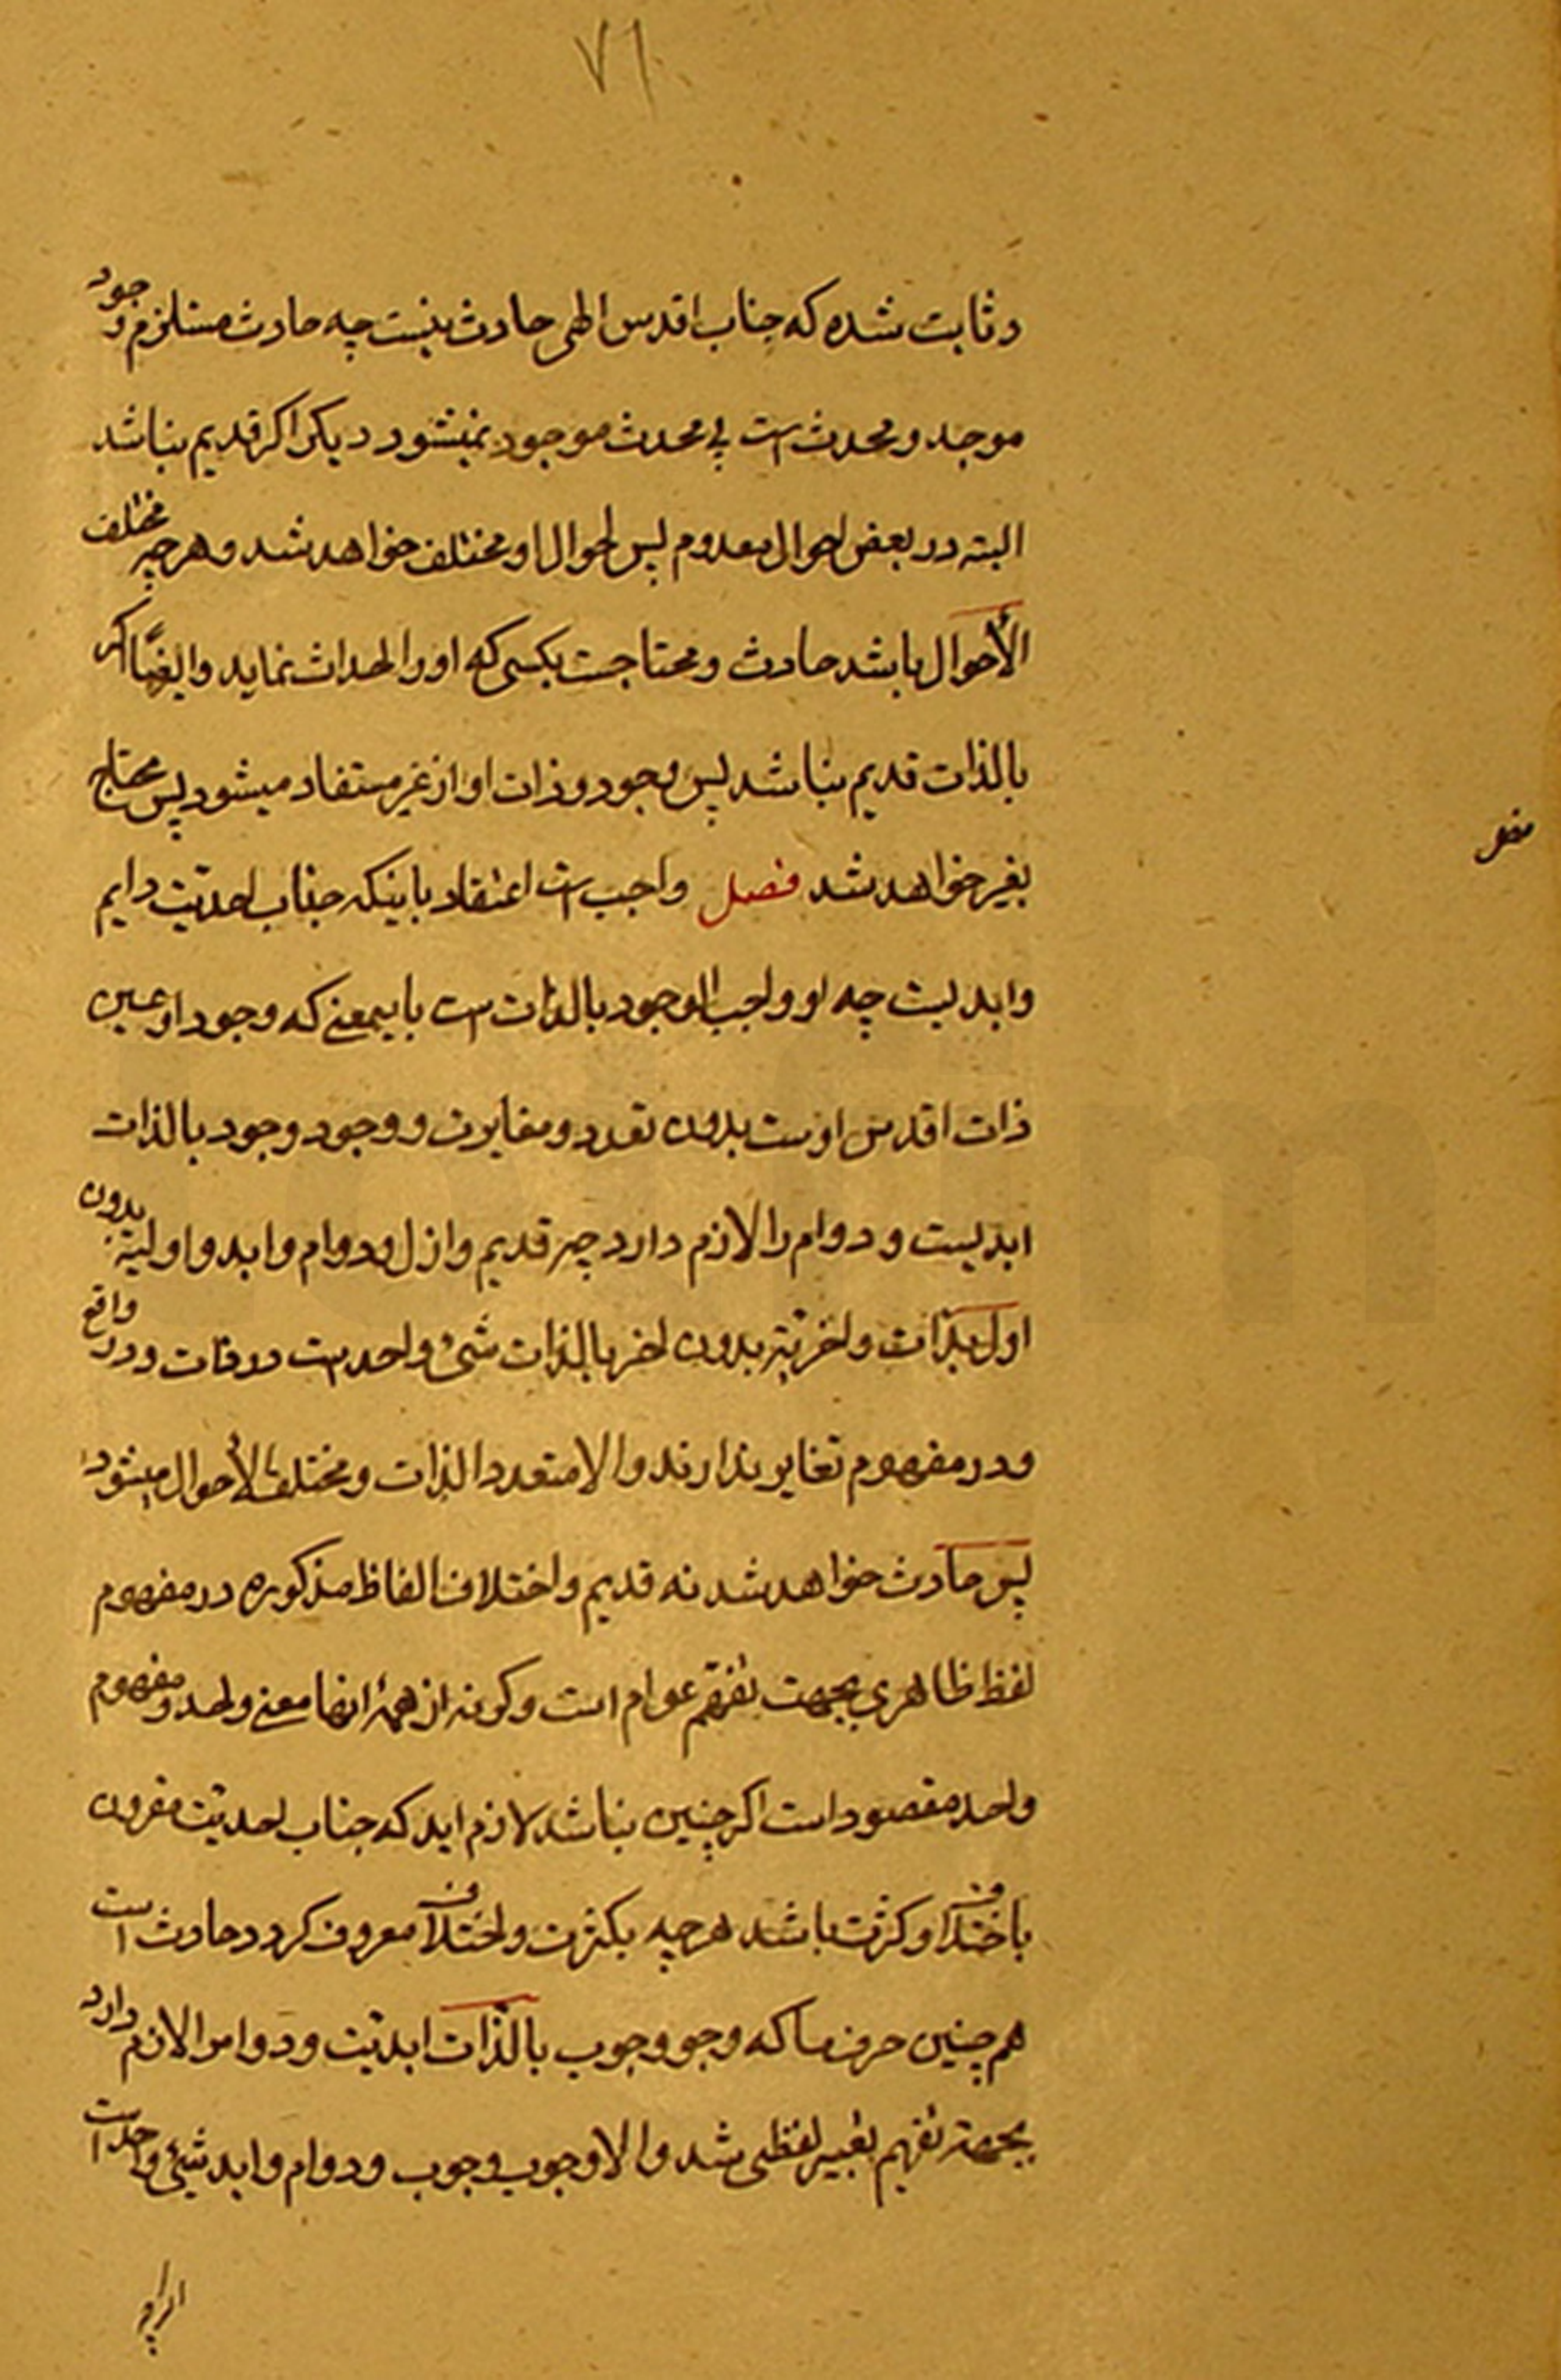 ۷۱
و ثابت شده که جناب اقدس الهی حادث نیست چه حادث مستلزم وجود
موجد و محدث است بی محدث موجود نمیشود دیکر اکر قدیم نباشد
البته در بعض احوال معدوم پس احوال او مختلف خواهد شد و هر چیز مختلف
الأحوال باشد حادث و محتاجست بکسی که او را احداث نماید و ایضًا اکر
بالذات قدیم نباشد پس وجود و ذات او از غیر مستفاد میشود پس محتاج
بغیر خواهد شد فصل واجب است اعتقاد باینکه جناب احدیّت دایم
و ابدیست چه او واجب الوجود بالذات است باینمعنے که وجود او عین
ذات اقدس اوست بدون تعدد و مغایرت و وجود وجود بالذات
ابدیست و دوام را لازم دارد چه قدیم و ازل و دوام و ابد و اولیة بدون
اول بذات و اخریّة بدون اخر بالذات شیء واحد است در ذات و در واقع
و در مفهوم تغایر ندارند والا متعدد الذات و مختلف الأحوال میشود
پس حادث خواهد شد نه قدیم و اختلاف الفاظ مذکوره در مفهوم
لفظ ظاهری بجهت تفهّم عوام است و کونه از همهٔ انها معنے واحد و مفهوم
واحد مقصود است اکر چنین نباشد لازم اید که جناب احدیّت مقرون
باختلاف و کثرت باشد هر چه بکثرت و اختلاف معروف کردد حادث است
هم چنین حرف ما که وجو وجوب بالذّات ابدیّت و دوام را لازم دارد
بجهة تفهیم تعبیر لفظی شد والا وجوب وجوب و دوام و ابد شیئ واحد است